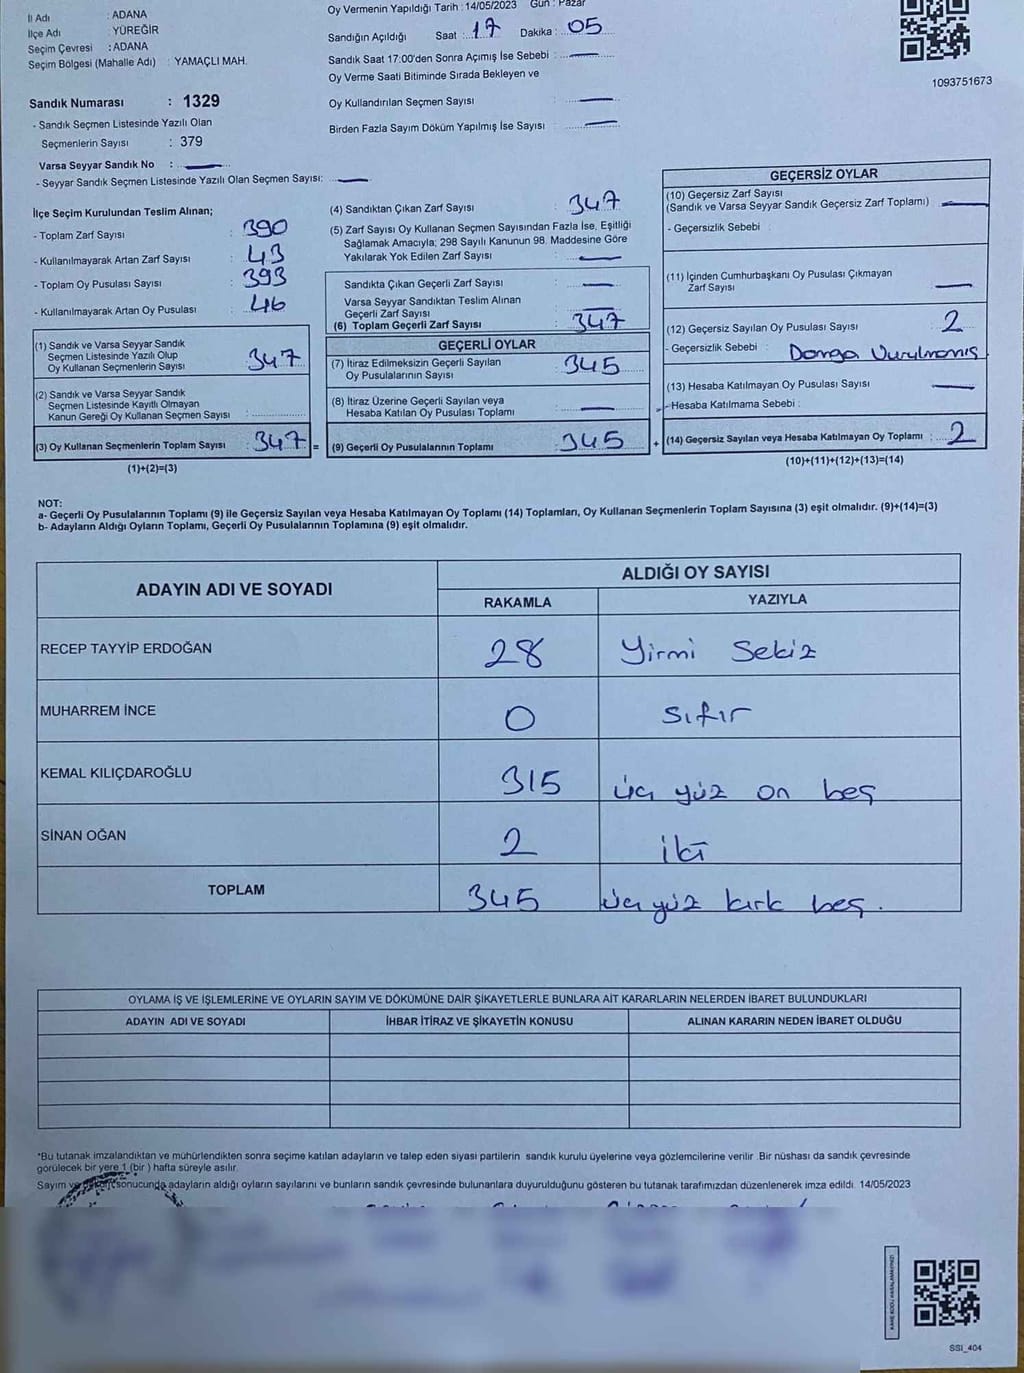 İl Adı : ADANA
İlçe Adı : YÜREĞİR
Seçim Çevresi : ADANA
Seçim Bölgesi (Mahalle Adı) : YAMAÇLI MAH.
Sandık Numarası : 1329
- Sandık Seçmen Listesinde Yazılı Olan
Seçmenlerin Sayısı : 379
Varsa Seyyar Sandık No :
- Seyyar Sandık Seçmen Listesinde Yazılı Olan Seçmen Sayısı:
Oy Vermenin Yapıldığı Tarih : 14/05/2023 Gün : Pazar
Sandığın Açıldığı Saat : 17 Dakika : 05
Sandık Saat 17:00'den Sonra Açımış İse Sebebi :
Oy Verme Saati Bitiminde Sırada Bekleyen ve
Oy Kullandırılan Seçmen Sayısı :
Birden Fazla Sayım Döküm Yapılmış İse Sayısı :
1093751673
İlçe Seçim Kurulundan Teslim Alınan;
- Toplam Zarf Sayısı : 390
- Kullanılmayarak Artan Zarf Sayısı : 43
- Toplam Oy Pusulası Sayısı : 393
- Kullanılmayarak Artan Oy Pusulası : 46
(1) Sandık ve Varsa Seyyar Sandık
Seçmen Listesinde Yazılı Olup
Oy Kullanan Seçmenlerin Sayısı : 347
(2) Sandık ve Varsa Seyyar Sandık
Seçmen Listesinde Kayıtlı Olmayan
Kanun Gereği Oy Kullanan Seçmen Sayısı :
(3) Oy Kullanan Seçmenlerin Toplam Sayısı : 347 =
(1)+(2)=(3)
(4) Sandıktan Çıkan Zarf Sayısı : 347
(5) Zarf Sayısı Oy Kullanan Seçmen Sayısından Fazla İse, Eşitliği
Sağlamak Amacıyla; 298 Sayılı Kanunun 98. Maddesine Göre
Yakılarak Yok Edilen Zarf Sayısı :
Sandıkta Çıkan Geçerli Zarf Sayısı :
Varsa Seyyar Sandıktan Teslim Alınan
Geçerli Zarf Sayısı :
(6) Toplam Geçerli Zarf Sayısı : 347
GEÇERLİ OYLAR
(7) İtiraz Edilmeksizin Geçerli Sayılan
Oy Pusulalarının Sayısı : 345
(8) İtiraz Üzerine Geçerli Sayılan veya
Hesaba Katılan Oy Pusulası Toplamı :
(9) Geçerli Oy Pusulalarının Toplamı : 345 +
GEÇERSİZ OYLAR
(10) Geçersiz Zarf Sayısı
(Sandık ve Varsa Seyyar Sandık Geçersiz Zarf Toplamı) :
- Geçersizlik Sebebi :
(11) İçinden Cumhurbaşkanı Oy Pusulası Çıkmayan
Zarf Sayısı :
(12) Geçersiz Sayılan Oy Pusulası Sayısı : 2
- Geçersizlik Sebebi : Damga Vurulmamış
(13) Hesaba Katılmayan Oy Pusulası Sayısı :
- Hesaba Katılmama Sebebi :
(14) Geçersiz Sayılan veya Hesaba Katılmayan Oy Toplamı : 2
(10)+(11)+(12)+(13)=(14)
NOT:
a- Geçerli Oy Pusulalarının Toplamı (9) ile Geçersiz Sayılan veya Hesaba Katılmayan Oy Toplamı (14) Toplamları, Oy Kullanan Seçmenlerin Toplam Sayısına (3) eşit olmalıdır. (9)+(14)=(3)
b- Adayların Aldığı Oyların Toplamı, Geçerli Oy Pusulalarının Toplamına (9) eşit olmalıdır.
ADAYIN ADI VE SOYADI
ALDIĞI OY SAYISI
RAKAMLA YAZIYLA
RECEP TAYYİP ERDOĞAN 28 Yirmi Sekiz
MUHARREM İNCE 0 sıfır
KEMAL KILIÇDAROĞLU 315 üç yüz on beş
SİNAN OĞAN 2 iki
TOPLAM 345 üç yüz kırk beş.
OYLAMA İŞ VE İŞLEMLERİNE VE OYLARIN SAYIM VE DÖKÜMÜNE DAİR ŞİKAYETLERLE BUNLARA AİT KARARLARIN NELERDEN İBARET BULUNDUKLARI
ADAYIN ADI VE SOYADI İHBAR İTİRAZ VE ŞİKAYETİN KONUSU ALINAN KARARIN NEDEN İBARET OLDUĞU
*Bu tutanak imzalandıktan ve mühürlendikten sonra seçime katılan adayların ve talep eden siyasi partilerin sandık kurulu üyelerine veya gözlemcilerine verilir .Bir nüshası da sandık çevresinde
görülecek bir yere 1 (bir ) hafta süreyle asılır.
Sayım ve sonucunda adayların aldığı oyların sayılarını ve bunların sandık çevresinde bulunanlara duyurulduğunu gösteren bu tutanak tarafımızdan düzenlenerek imza edildi. 14/05/2023
SSI_404